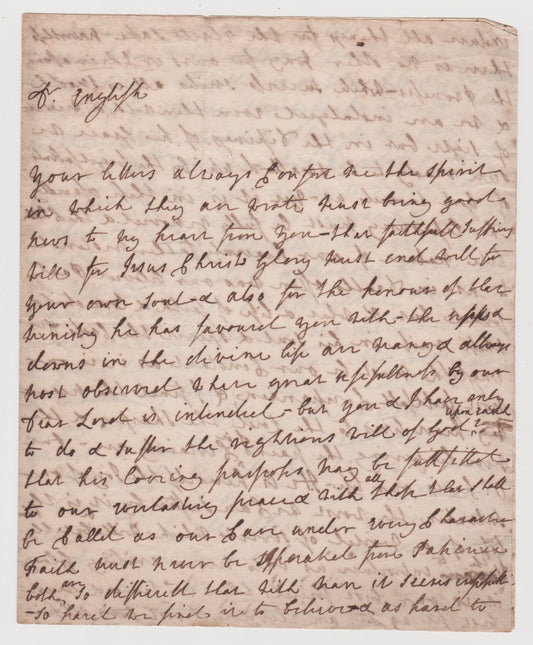 Dr. English
Your letters always Comfort me the spirit
in which they are wrote must bring good
news to my heart from you – that faithfull Suffering
will for Jesus Christs Glory must end well for
your own Soul – & also for the honour of that
ministry he has favoured you with – the upps &
downs in the divine life are many & always
most observed where great usefullness by our
Dear Lord is intended – but you & I have only
to do & suffer the righteous will of God upon earth
that his loveing purposes may be fullfilled
to our everlasting peace & with all those that shall
be Called as our Care under every Character
Faith must never be seperated from Patience
both are so difficult that with man it seems impossible
– so hard we find it to believe – & as hard to